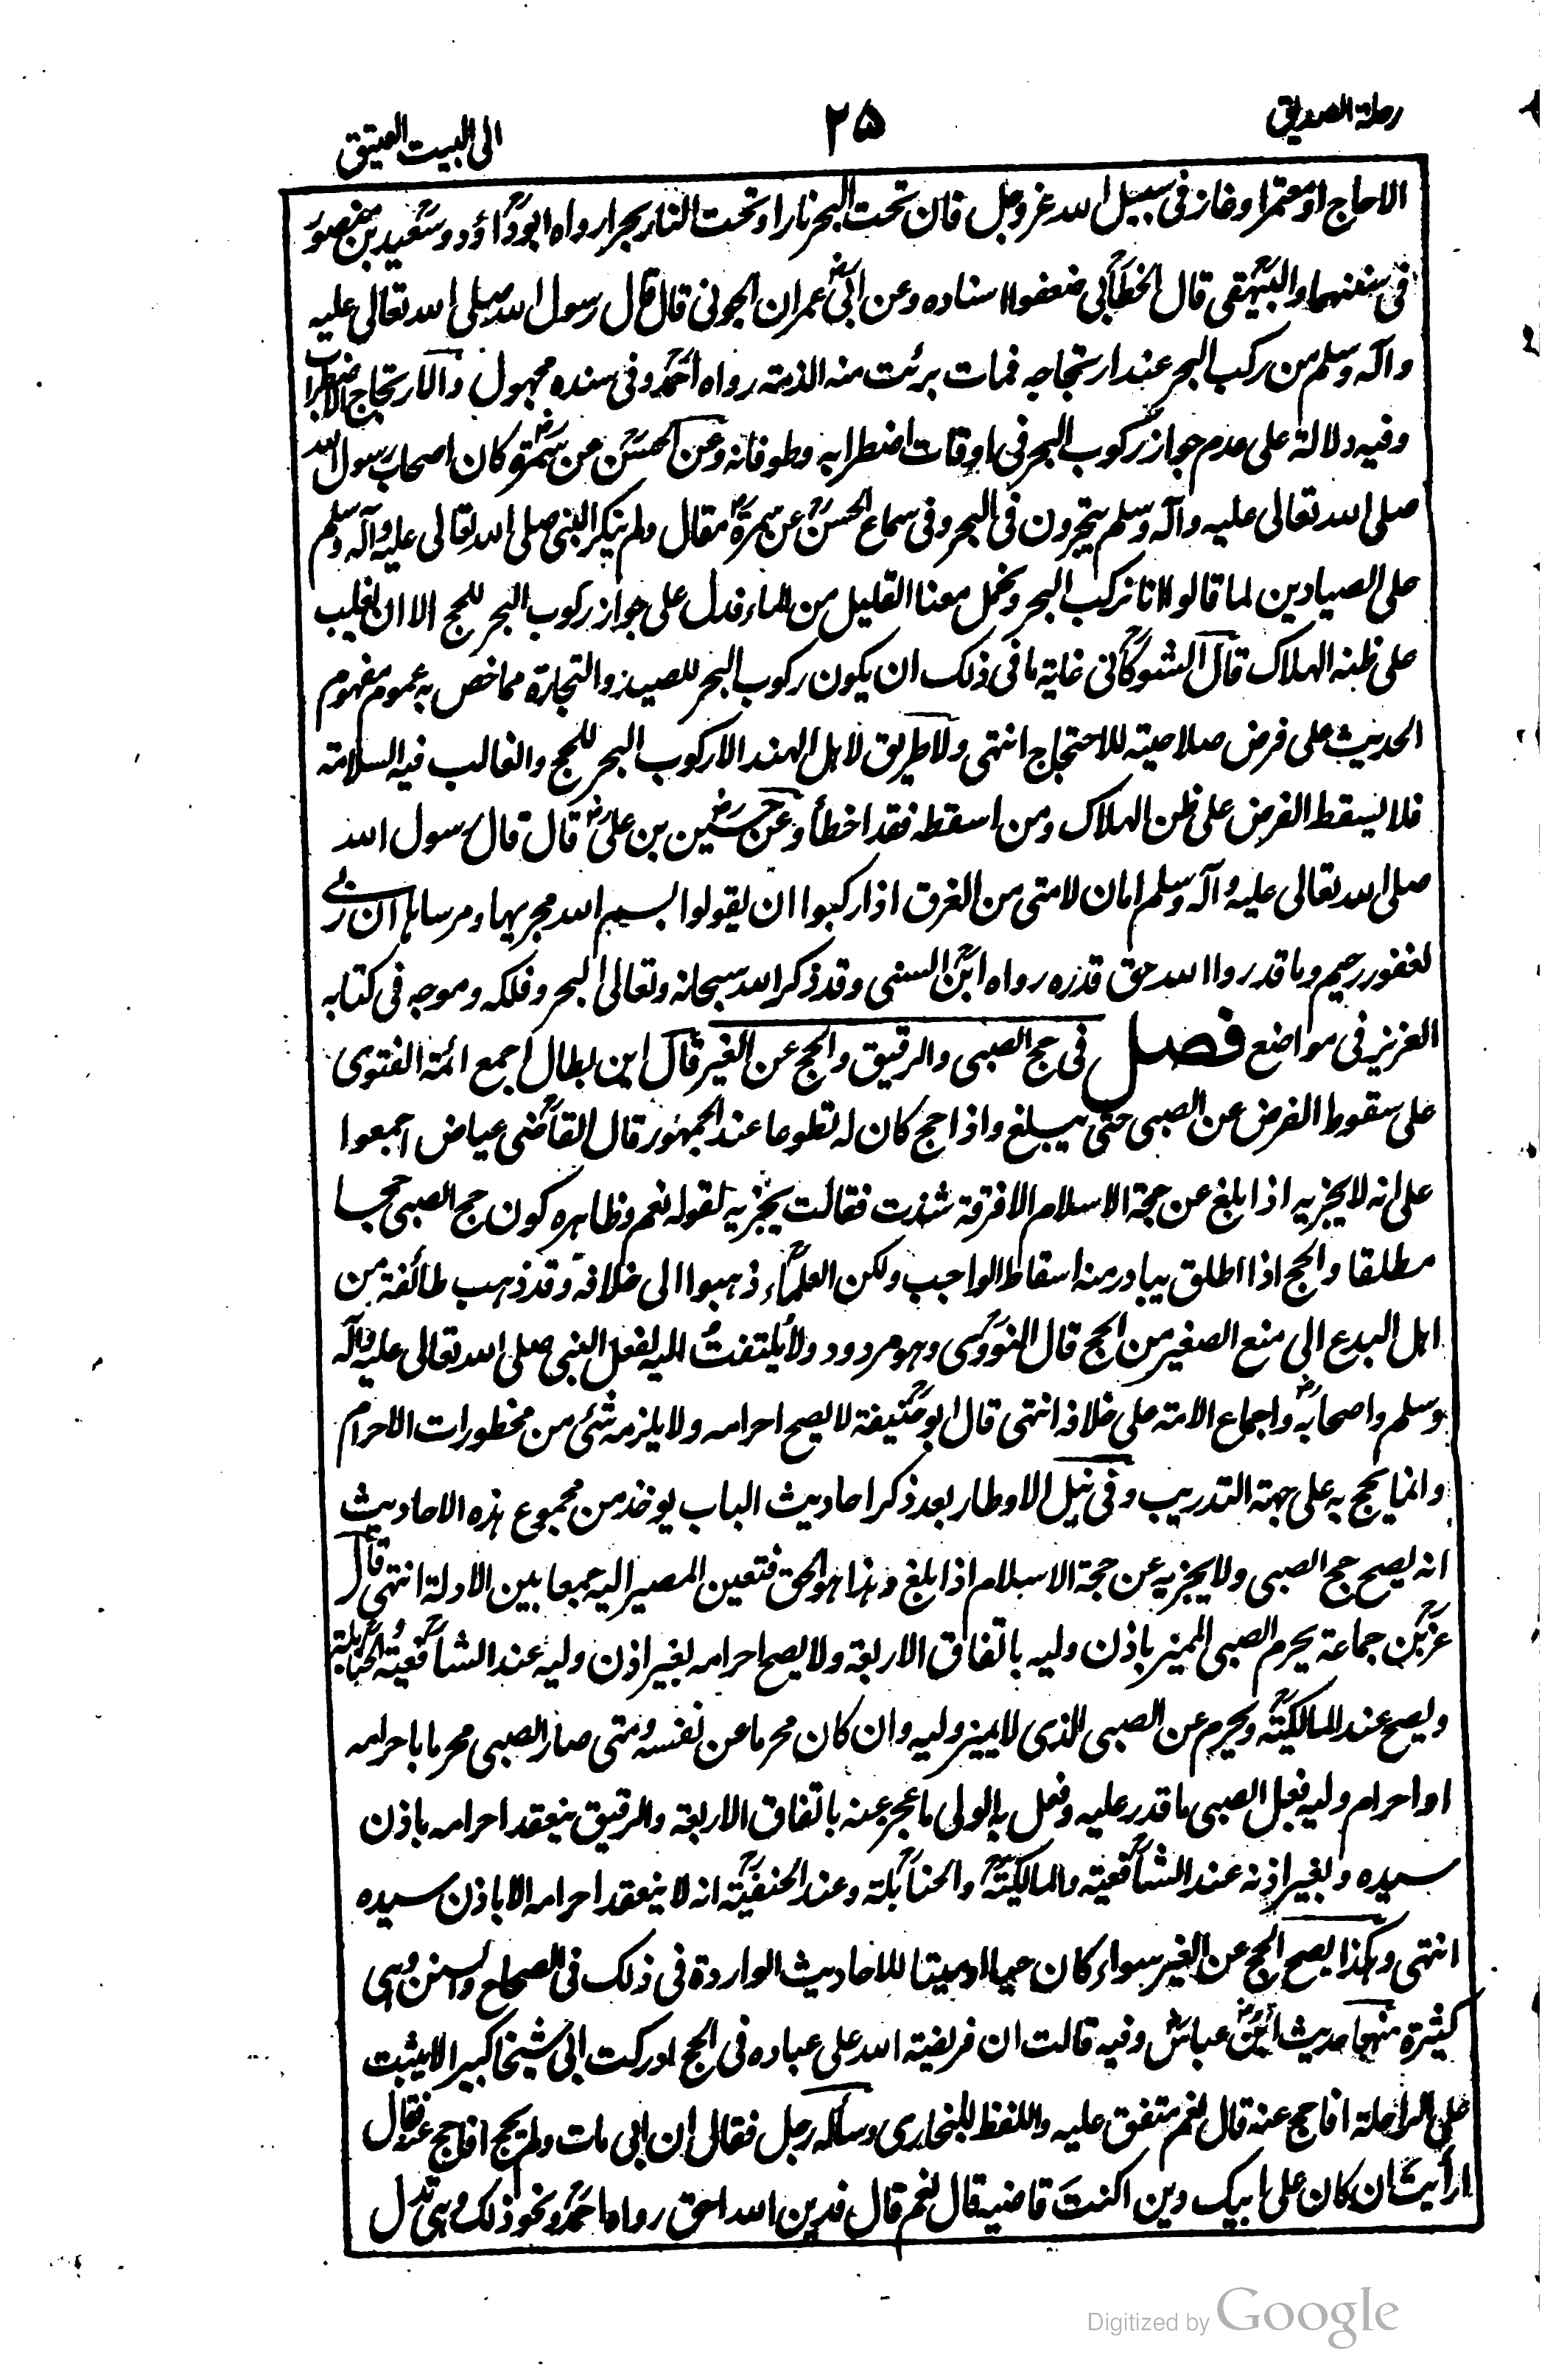 رحلة الصديق
٢٥
الى البيت العتيق
الاحاج او معتمر او غاز فى سبيل الله عزوجل فان تحت البحر نارا وتحت النار بحرا رواه ابوداؤد وسعيد بن منصور
فى سننهما والبيهقى قال الخطابى ضعفوا اسناده وعن ابى عمران الجونى قال قال رسول الله صلى الله تعالى عليه
وآله وسلم من ركب البحر عند ارتجاجه فمات برئت منه الذمة رواه احمد وفى سنده مجهول والارتجاج الاضطراب
وفيه دلالة على عدم جواز ركوب البحر فى اوقات اضطرابه وطوفانه وعن الحسن عن سمرة كان اصحاب رسول الله
صلى الله تعالى عليه وآله وسلم يتجرون فى البحر وفى سماع الحسن عن سمرة مقال ولم ينكر النبى صلى الله تعالى عليه وآله وسلم
على الصيادين لما قالوا انا نركب البحر ونحمل معنا القليل من الماء فدل على جواز ركوب البحر للحج الا ان يغلب
على ظنه الهلاك قال الشوكانى غاية ما فى ذلك ان يكون ركوب البحر للصيد والتجارة مما خص به عموم مفهوم
الحديث على فرض صلاحيته للاحتجاج انتهى ولا طريق لاهل الهند الا ركوب البحر للحج والغالب فيه السلامة
فلا يسقط الفرض على ظن الهلاك ومن اسقطه فقد اخطأ وعن حسين بن على قال قال رسول الله
صلى الله تعالى عليه وآله وسلم امان لامتى من الغرق اذا ركبوا ان يقولوا بسم الله مجريها ومرساها ان ربے
لغفور رحيم وما قدروا الله حق قدره رواه ابن السنى وقد ذكر الله سبحانه وتعالى البحر وفلكه وموجه فى كتابه
العزيز فى مواضع فصل فى حج الصبى والرقيق والحج عن الغير قال ابن بطال اجمع ائمة الفتوى
على سقوط الفرض عن الصبى حتى يبلغ واذا حج كان له تطوعا عند الجمهور قال القاضى عياض اجمعوا
على انه لا يجزيه اذا بلغ عن حجة الاسلام الا فرقة شذت فقالت يجزيه لقوله نعم وظاهره كون حج الصبى حجا
مطلقا والحج اذا اطلق يبادر منه اسقاط الواجب ولكن العلماء ذهبوا الى خلافه وقد ذهب طائفة من
اهل البدع الى منع الصغير من الحج قال النووى وهو مردود ولا يلتفت اليه لفعل النبى صلى الله تعالى عليه وآله
وسلم واصحابه واجماع الامة على خلافه انتهى قال ابو حنيفة لا يصح احرامه ولا يلزمه شئ من محظورات الاحرام
وانما يحج به على جهة التدريب وفى نيل الاوطار بعد ذكر احاديث الباب يوخذ من مجموع هذه الاحاديث
انه يصح حج الصبى ولا يجزيه عن حجة الاسلام اذا بلغ وهذا هو الحق فتعين المصير اليه جمعا بين الادلة انتهى قال
عز بن جماعة يحرم الصبى المميز باذن وليه باتفاق الاربعة ولا يصح احرامه بغير اذن وليه عند الشافعية والحنابلة
ويصح عند المالكية ويحرم عن الصبى الذى لا يميز وليه وان كان محرما عن نفسه ومتى صار الصبى محرما باحرامه
او احرام وليه فعل الصبى ما قدر عليه وفعل به الولى ما عجز عنه باتفاق الاربعة والرقيق ينعقد احرامه باذن
سيده وبغير اذنه عند الشافعية والمالكية والحنابلة وعند الحنفية انه لا ينعقد احرامه الا باذن سيده
انتهى وهكذا يصح الحج عن الغير سواء كان حيا او ميتا للاحاديث الواردة فى ذلك فى الصحاح والسنن وهى
كثيرة منها حديث ابن عباس وفيه قالت ان فريضة الله على عباده فى الحج ادركت ابى شيخا كبيرا لا يثبت
على الراحلة افاحج عنه قال نعم متفق عليه واللفظ للبخارى وسأله رجل فقال ان ابى مات ولم يحج افاحج عنه فقال
ارأيت ان كان على ابيك دين اكنت قاضيه قال نعم قال فدين الله احق رواه احمد ونحو ذلك وهى تدل
Digitized by Google